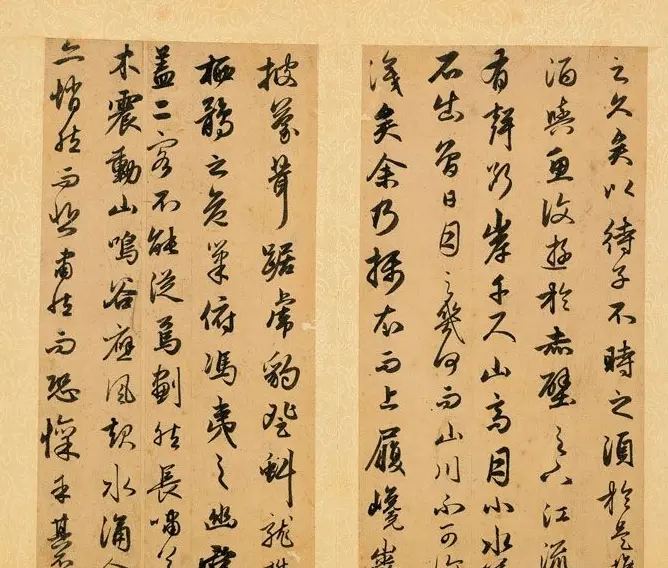 之久矣以待子不時之須於是攜
酒與魚復遊於赤壁之下江流
有聲斷岸千尺山高月小水落
石出曾日月之幾何而山川不可
淺矣余乃攝衣而上履巉巖
披蒙茸踞虎豹登虯龍攀
栖鶻之危巢俯馮夷之幽宮
蓋二客不能從焉劃然長嘯
木震動山鳴谷應風起水涌
亦悄然而悲肅然而恐凜乎其不